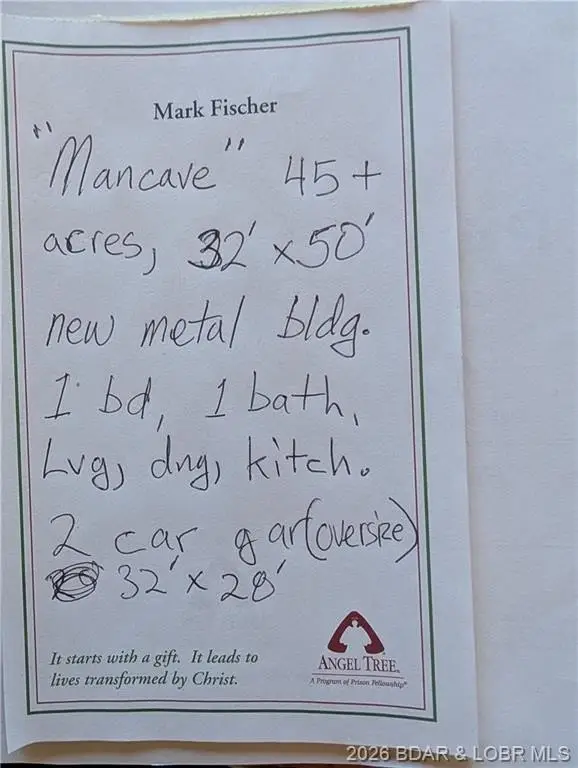 Mark Fischer
"Mancave" 45+
acres, 32' x 50'
new metal bldg.
1 bd, 1 bath,
Lvg, dng, kitch.
2 car gar (oversize)
32' x 28'
It starts with a gift. It leads to
lives transformed by Christ.
ANGEL TREE®
A Program of Prison Fellowship®
2026 BDAR & LOBR MLS